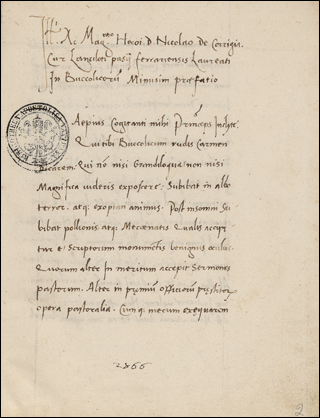 Ill. Ac Mag.mo Heroi D. Nicolao De Corrigia
Cur Lanciloti pasij ferrariensis Laureati
In Buccolicorum Minusim præfatio
Aepius Cogitanti mihi Princeps Inclyte,
Qui tibi Buccolicum rudis Carmen
Dicarem. Qui nō nisi Grandiloqua. non nisi
Magnifica videris exposcere. Subibat in albo
terror. atq; exopian animus. Post insomni Su-
bibat pollionis atq; Mecœnatis. Qualis accipi
tur et Scriptorum monumentis benignus oculus.
Quorum alter In meritum accepit Sermones
pastorum. Alter in præmium officiorum
opera pastoralia. Cum q; mecum exequarem
BIBLIOTHECA APOSTOLICA
2866
2